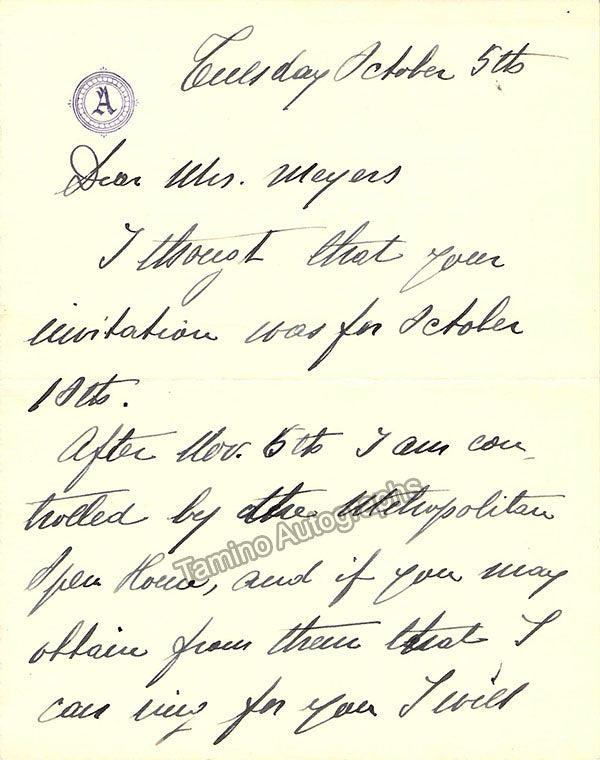 Tuesday October 5th
A
Dear Mrs. Meyers
I thought that your
invitation was for October
18th.
After Nov. 5th I am con-
trolled by the Metropolitan
Open House, and if you may
obtain from them that I
can sing for you I will
Tamino Autographs